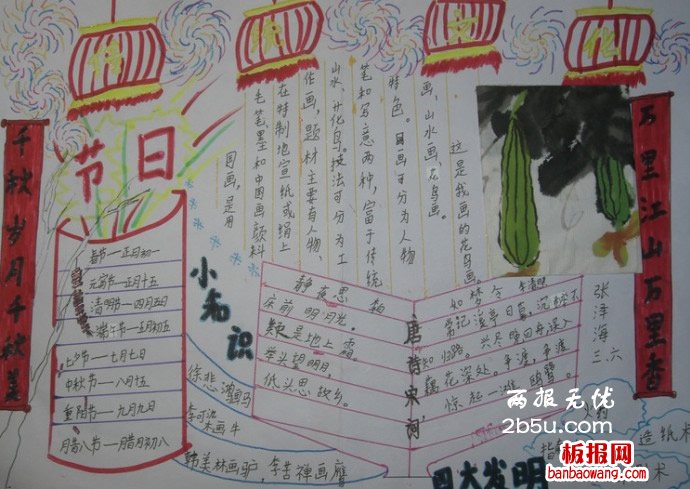 传
统
文
化
千秋岁月千秋美
万里江山万里香
节日
春节一正月初一
元宵节一正月十五
清明节一四月五日
端午节一五月初五
七夕节一七月七日
中秋节一八月十五
重阳节一九月九日
腊八节一腊月初八
国画，是用
毛笔墨和中国画颜料
在特制地宣纸或绢上
作画，题材主要有人物、
山水、花鸟。技法可分为工
笔和写意两种，富于传统
特色。国画可分为人物
画，山水画，花鸟画。
这是我画的花鸟画。
小知识
徐悲鸿画马
李可染画牛
韩美林画驴，李苦禅画鹰
唐诗宋词
静夜思
床前明月光，
疑是地上霜。
举头望明月
低头思故乡。
如梦令 李清照
常记溪亭日暮，沉醉不
知归路。兴尽晚回舟，误入
藕花深处。争渡，争渡，
惊起一滩鸥鹭。
张洋海
三、六
四大发明
火药
指南
造纸术
术
两报无忧
2b5u.com
板报网
banbaowang.com